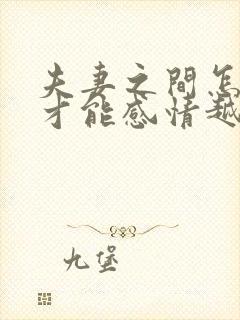 夫妻之間怎
才能感情越
九堡